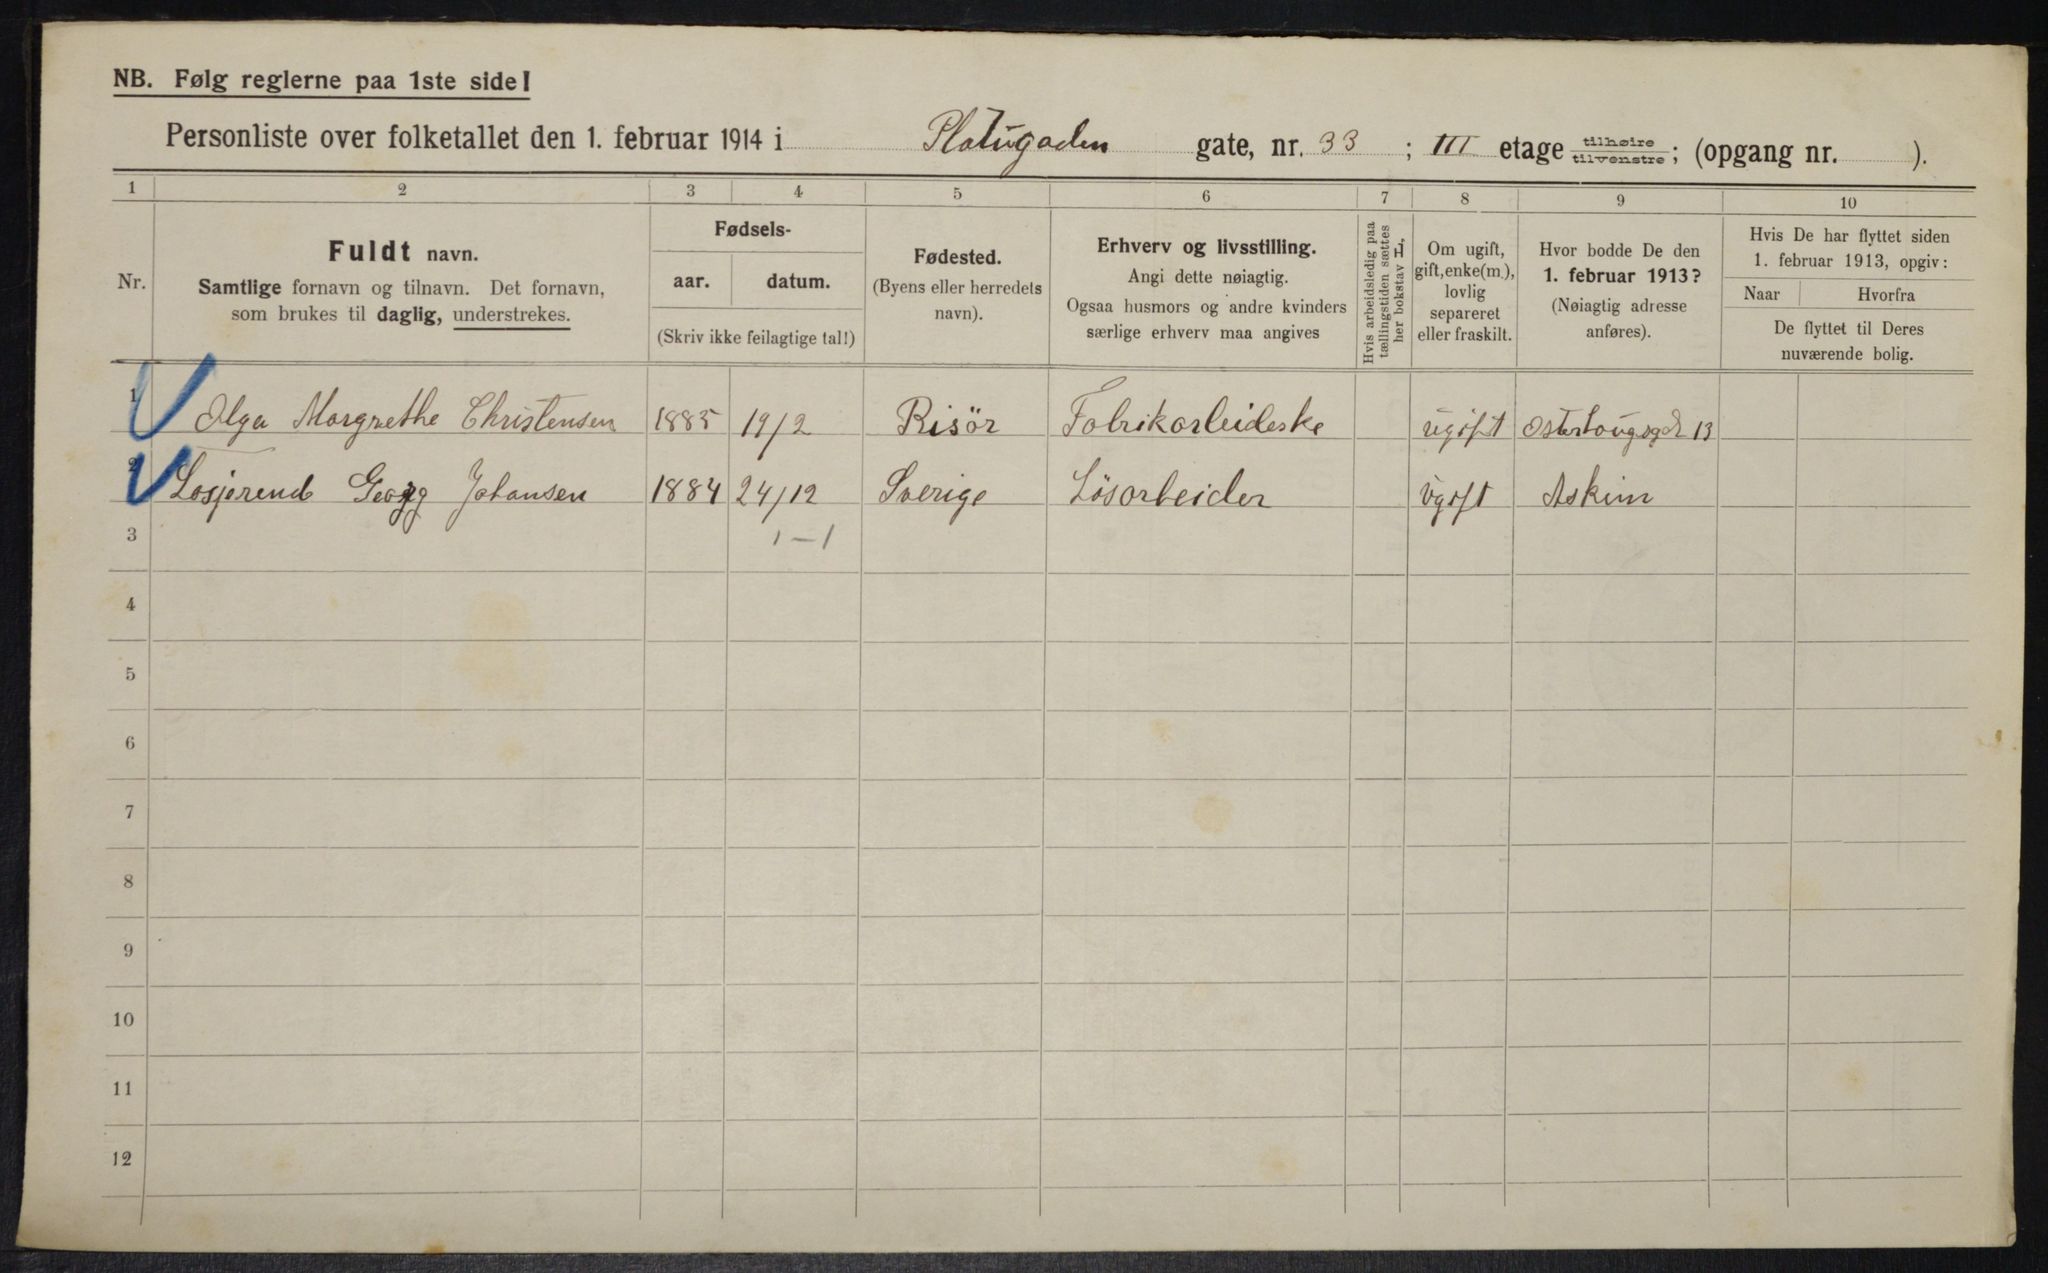 NB. Følg reglerne paa 1ste side!
Personliste over folketallet den 1. februar 1914 i Platugaden gate, nr. 33 ; III etage tilhøire tilvenstre ; (opgang nr. ).
1 2 3 4 5 6 7 8 9 10
Nr.
Fuldt navn.
Samtlige fornavn og tilnavn. Det fornavn,
som brukes til daglig, understrekes.
Fødsels-
aar. datum.
(Skriv ikke feilagtige tal!)
Fødested.
(Byens eller herredets
navn).
Erhverv og livsstilling.
Angi dette nøiagtig.
Ogsaa husmors og andre kvinders
særlige erhverv maa angives
Hvis arbeidsledig paa
tællingstiden sættes
her bokstav L,
Om ugift,
gift, enke(m.),
lovlig
separeret
eller fraskilt.
Hvor bodde De den
1. februar 1913?
(Nøiagtig adresse
anføres).
Hvis De har flyttet siden
1. februar 1913, opgiv:
Naar Hvorfra
De flyttet til Deres
nuværende bolig.
1 Olga Margrethe Christensen 1885 19/2 Risör Fabrikarbeideske ugift 13
2 Losjerend Georg Johansen 1884 24/12 Sverige Lösarbeider ugift Askim
3 1-1
4
5
6
7
8
9
10
11
12